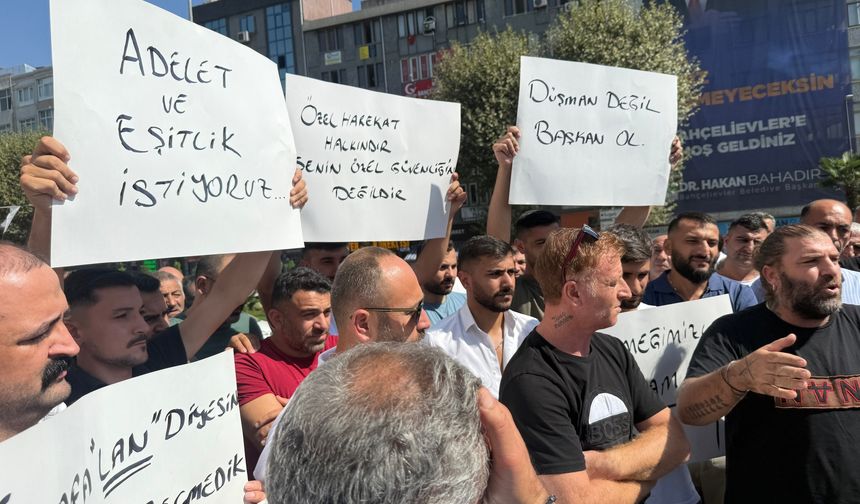 ADELET
VE
EŞİTLİK
İSTİYORUZ...
ÖZEL HAREKAT
HALKINDIR
SENİN ÖZEL GÜVENLİĞİN
DEĞİLDİR
DÜŞMAN DEĞİL
BAŞKAN OL.
MEYECEKSİN
BAHÇELİEVLER'E
HOŞ GELDİNİZ
DR. HAKAN BAHADIR
Bahçelievler Belediye Başkanı
"LAN" DİYESİN
SEÇMEDİK
EMEĞİMİZ
BOSS